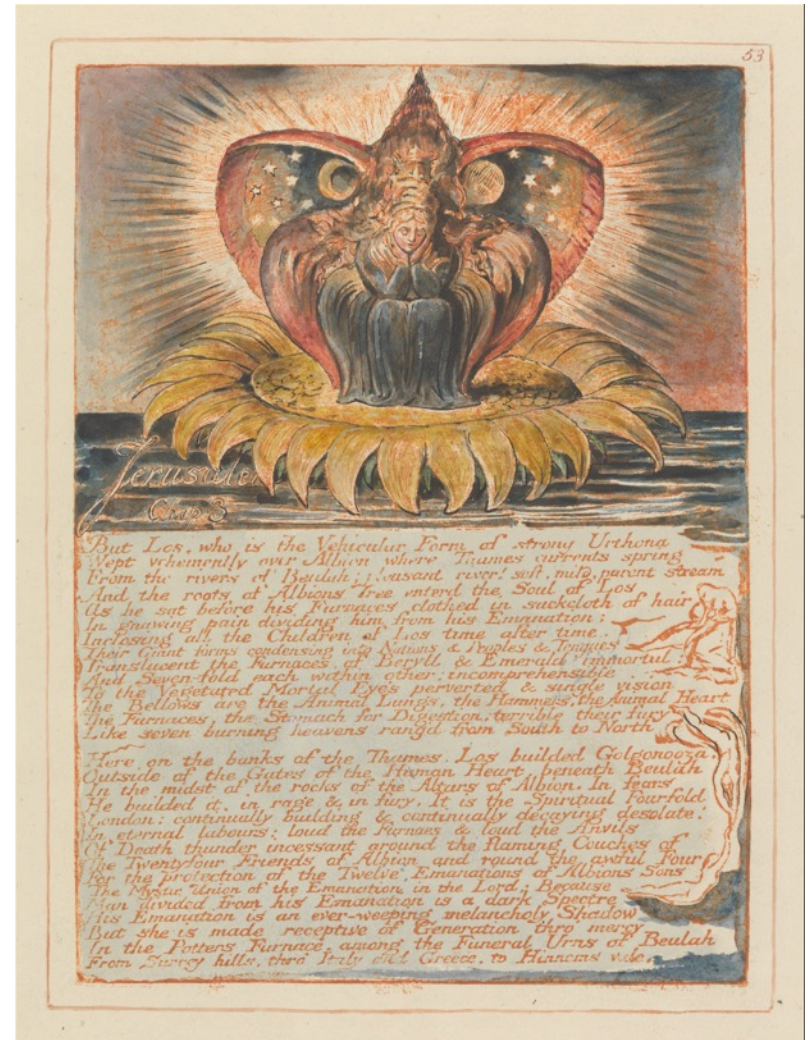 53
Jerusalem
Chap 3
But Los, who is the Vehicular Form of strong Urthona
Wept vehemently over Albion where Thames currents spring
From the rivers of Beulah; pleasant river! soft, mild, parent stream
And the roots of Albions Tree enterd the Soul of Los
As he sat before his Furnaces clothed in sackcloth of hair
In gnawing pain dividing him from his Emanation;
Inclosing all the Children of Los time after time.
Their Giant forms condensing into Nations & Peoples & Tongues
Translucent the Furnaces, of Beryll & Emerald immortal
And Seven-fold each within other: incomprehensible
To the Vegetated Mortal Eye's perverted & single vision
The Bellows are the Animal Lungs, the Hammers, the Animal Heart
The Furnaces, the Stomach for Digestion; terrible their fury
Like seven burning heavens rang'd from South to North
Here on the banks of the Thames, Los builded Golgonooza,
Outside of the Gates of the Human Heart, beneath Beulah
In the midst of the rocks of the Altars of Albion. In fears
He builded it, in rage & in fury. It is the Spiritual Fourfold
London: continually building & continually decaying desolate!
In eternal labours: loud the Furnaces & loud the Anvils
Of Death thunder incessant around the flaming Couches of
The Twentyfour Friends of Albion and round the awful Four
For the protection of the Twelve Emanations of Albions Sons
The Mystic Union of the Emanation in the Lord; Because
Man divided from his Emanation is a dark Spectre
His Emanation is an ever-weeping melancholy Shadow
But she is made receptive of Generation thro' mercy
In the Potters Furnace, among the Funeral Urns of Beulah
From Surrey hills, thro' Italy and Greece, to Hinnoms vale.